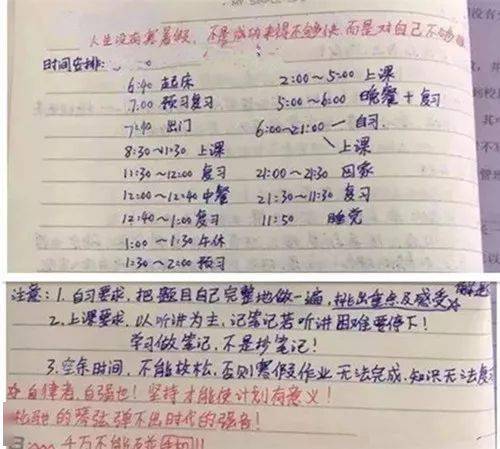 人生没有寒暑假，不是成功来得不够快，而是对自己不够狠
时间安排：
6:40 起床
7:00 预习复习
7:40 出门
8:30～11:30 上课
11:30～12:00 复习
12:00～12:40 中餐
12:40～1:00 复习
1:00～1:30 午休
1:30～2:00 预习
2:00～5:00 上课
5:00～6:00 晚餐＋复习
6:00～21:00 自习
上课
21:00～21:30 回家
21:30～11:30 复习
11:50 睡觉
注意：1. 自习要求，把题目自己完整地做一遍，挑出重点及感受
2. 上课要求，以听讲为主，记笔记若听讲困难要停下！
学习做笔记，不是抄笔记！
3. 空余时间，不能放松，否则寒假及作业无法完成，知识无法复
自律者，自强也！坚持才能使计划有意义！
松弛的琴弦弹不出时代的强音！
千万不能玩手机!!